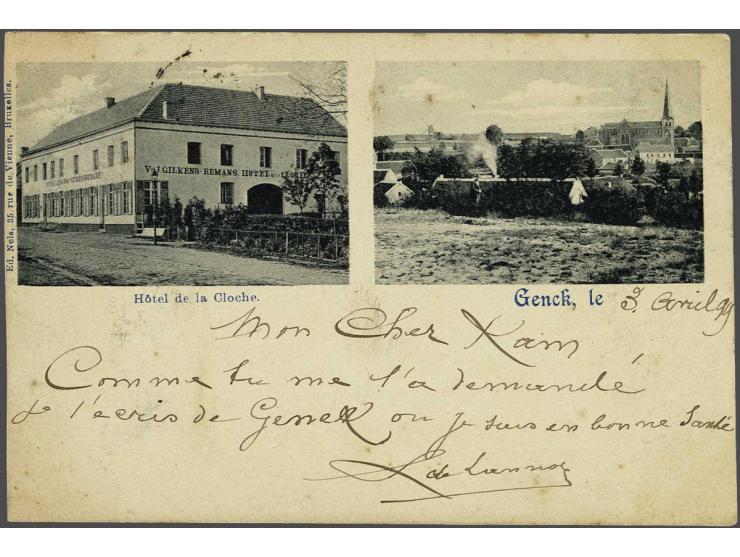 Ed. Nels, 35 rue de Vienne, Bruxelles.
Vve J. GILKENS-REMANS. HOTEL
Hôtel de la Cloche.
Genck, le 3 Avril 99
Mon Cher Kam
Comme tu me l'a demandé
je t'écris de Genck ou je suis en bonne Santé
L de Lannoy